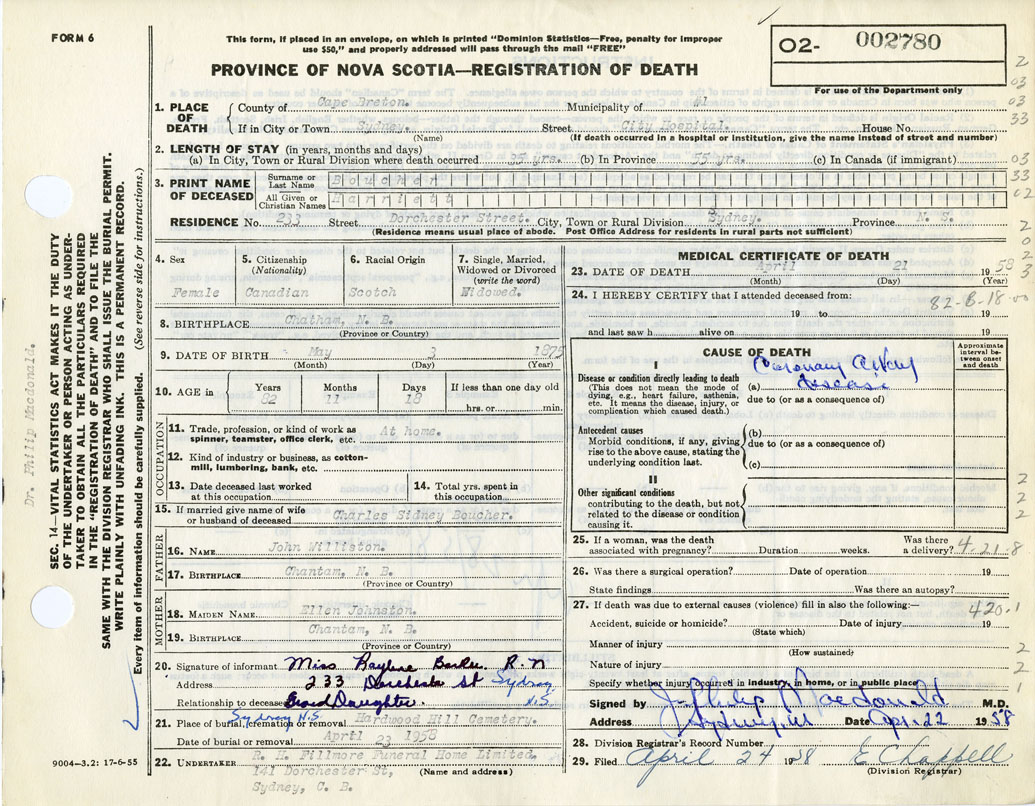 FORM 6
This form, if placed in an envelope, on which is printed "Dominion Statistics—Free, penalty for improper
use $50," and properly addressed will pass through the mail "FREE"
PROVINCE OF NOVA SCOTIA—REGISTRATION OF DEATH
02- 002780
For use of the Department only
1. PLACE OF DEATH
County of Cape Breton. Municipality of #1
If in City or Town Sydney. Street City Hospital. House No.
(Name) (If death occurred in a hospital or institution, give the name instead of street and number)
2. LENGTH OF STAY (in years, months and days)
(a) In City, Town or Rural Division where death occurred 35 yrs. (b) In Province 55 yrs. (c) In Canada (if immigrant)
3. PRINT NAME OF DECEASED
Surname or Last Name Boucher
All Given or Christian Names Harriett
RESIDENCE No. 233 Street Dorchester Street. City, Town or Rural Division Sydney. Province N. S.
(Residence means usual place of abode. Post Office Address for residents in rural parts not sufficient)
4. Sex
Female
5. Citizenship
(Nationality)
Canadian
6. Racial Origin
Scotch
7. Single, Married,
Widowed or Divorced
(write the word)
Widowed.
8. BIRTHPLACE Chatham, N. B.
(Province or Country)
9. DATE OF BIRTH May 3 1875
(Month) (Day) (Year)
10. AGE in
Years 82
Months 11
Days 18
If less than one day old
hrs. or min.
OCCUPATION
11. Trade, profession, or kind of work as
spinner, teamster, office clerk, etc. At home.
12. Kind of industry or business, as cotton-
mill, lumbering, bank, etc.
13. Date deceased last worked
at this occupation
14. Total yrs. spent in
this occupation
15. If married give name of wife
or husband of deceased Charles Sidney Boucher.
FATHER
16. NAME John Williston.
17. BIRTHPLACE Chantam, N. B.
(Province or Country)
MOTHER
18. MAIDEN NAME Ellen Johnston.
19. BIRTHPLACE Chantam, N. B.
(Province or Country)
20. Signature of informant Miss R. N
Address 233 Dorchester St Sydney N.S.
Relationship to deceased Grand Daughter.
21. Place of burial, cremation or removal Sydney N.S. Hardwood Hill Cemetery.
Date of burial or removal April 23 1958
22. UNDERTAKER R. H. Fillmore Funeral Home Limited.
(Name and address)
141 Dorchester St,
Sydney, C. B.
MEDICAL CERTIFICATE OF DEATH
23. DATE OF DEATH April 21 1958
(Month) (Day) (Year)
24. I HEREBY CERTIFY that I attended deceased from:
82-B-18
19 to 19
and last saw h alive on 19
CAUSE OF DEATH
Approximate interval between onset and death
I
Disease or condition directly leading to death
(This does not mean the mode of
dying, e.g., heart failure, asthenia,
etc. It means the disease, injury, or
complication which caused death.)
(a) Coronary Artery disease
due to (or as a consequence of)
Antecedent causes
Morbid conditions, if any, giving
rise to the above cause, stating the
underlying condition last.
(b)
due to (or as a consequence of)
(c)
II
Other significant conditions
contributing to the death, but not
related to the disease or condition
causing it.
25. If a woman, was the death
associated with pregnancy? Duration weeks. Was there
a delivery? 4-21-8
26. Was there a surgical operation? Date of operation 19
State findings Was there an autopsy?
27. If death was due to external causes (violence) fill in also the following:— 420.1
Accident, suicide or homicide? Date of injury 19
(State which)
Manner of injury
(How sustained)
Nature of injury
Specify whether injury occurred in industry, in home, or in public place
Signed by J. Philip Macdonald M.D.
Address Sydney Date Apr. 22 1958
28. Division Registrar's Record Number
29. Filed April 24 1958 E Chappell
(Division Registrar)
9004—3.2: 17-6-55
Dr. Philip Macdonald.
SEC. 14—VITAL STATISTICS ACT MAKES IT THE DUTY
OF THE UNDERTAKER OR PERSON ACTING AS UNDER-
TAKER TO OBTAIN ALL THE PARTICULARS REQUIRED
IN THE "REGISTRATION OF DEATH" AND TO FILE THE
SAME WITH THE DIVISION REGISTRAR WHO SHALL ISSUE THE BURIAL PERMIT.
WRITE PLAINLY WITH UNFADING INK. THIS IS A PERMANENT RECORD.
Every item of information should be carefully supplied. (See reverse side for instructions.)
2
03
03
33
03
33
02
2
0
2
3
2
2
2
2
2
1